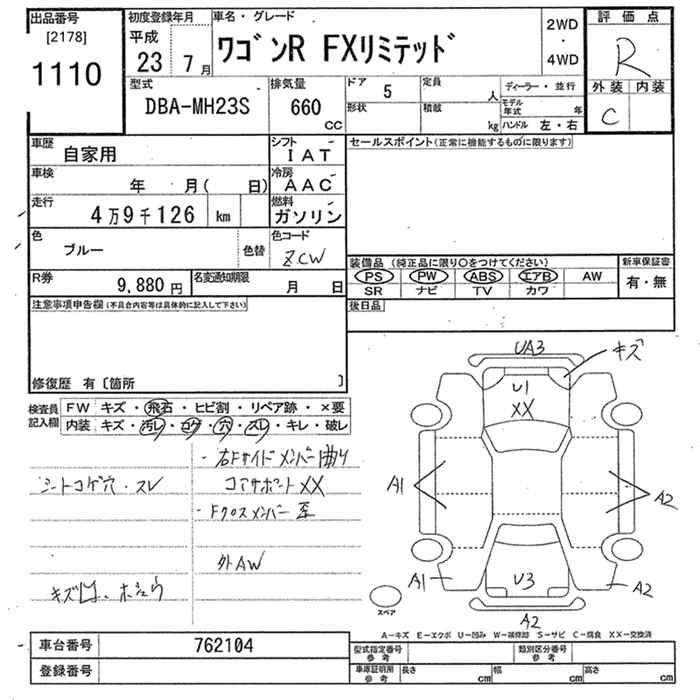 出品番号
[2178]
1110
初度登録年月
平成
23 7月
車名・グレード
ワゴンR FXリミテッド
2WD
・
4WD
評価点
R
外装 内装
C
型式
DBA-MH23S
排気量
660
CC
ドア 5
定員 人
形状
積載 kg
ディーラー・並行
モデル年式 年
ハンドル 左・右
車歴 自家用
シフト IAT
セールスポイント(正常に機能するものに限ります)
車検 年 月( 日)
冷房 AAC
走行 4万9千126 km
燃料 ガソリン
色 ブルー 色替
色コード ZCW
装備品(純正品に限り○をつけてください)
新車保証書
PS PW ABS エアB AW
SR ナビ TV カワ
有・無
R券 9,880円
名変通知期限 月 日
後日品
注意事項申告欄(不具合内容等は具体的に記入して下さい)
修復歴 有〔箇所 〕
検査員記入欄
FW キズ・飛石・ヒビ割・リペア跡・×要
内装 キズ・汚レ・コゲ・穴・スレ・キレ・破レ
・右Fサイドメンバー曲り
シートコゲ穴・スレ
コアサポートXX
・Fクロスメンバー歪
外AW
UA3
キズ
U1
XX
A1
A2
A1
U3
A2
A2
スペア
A-キズ E-エクボ U-凹み W-補修跡 S-サビ C-腐食 XX-交換済
車台番号 762104
登録番号
型式指定番号
参考
類別区分番号
参考
車庫証明用
参考
長さ cm
幅 cm
高さ cm